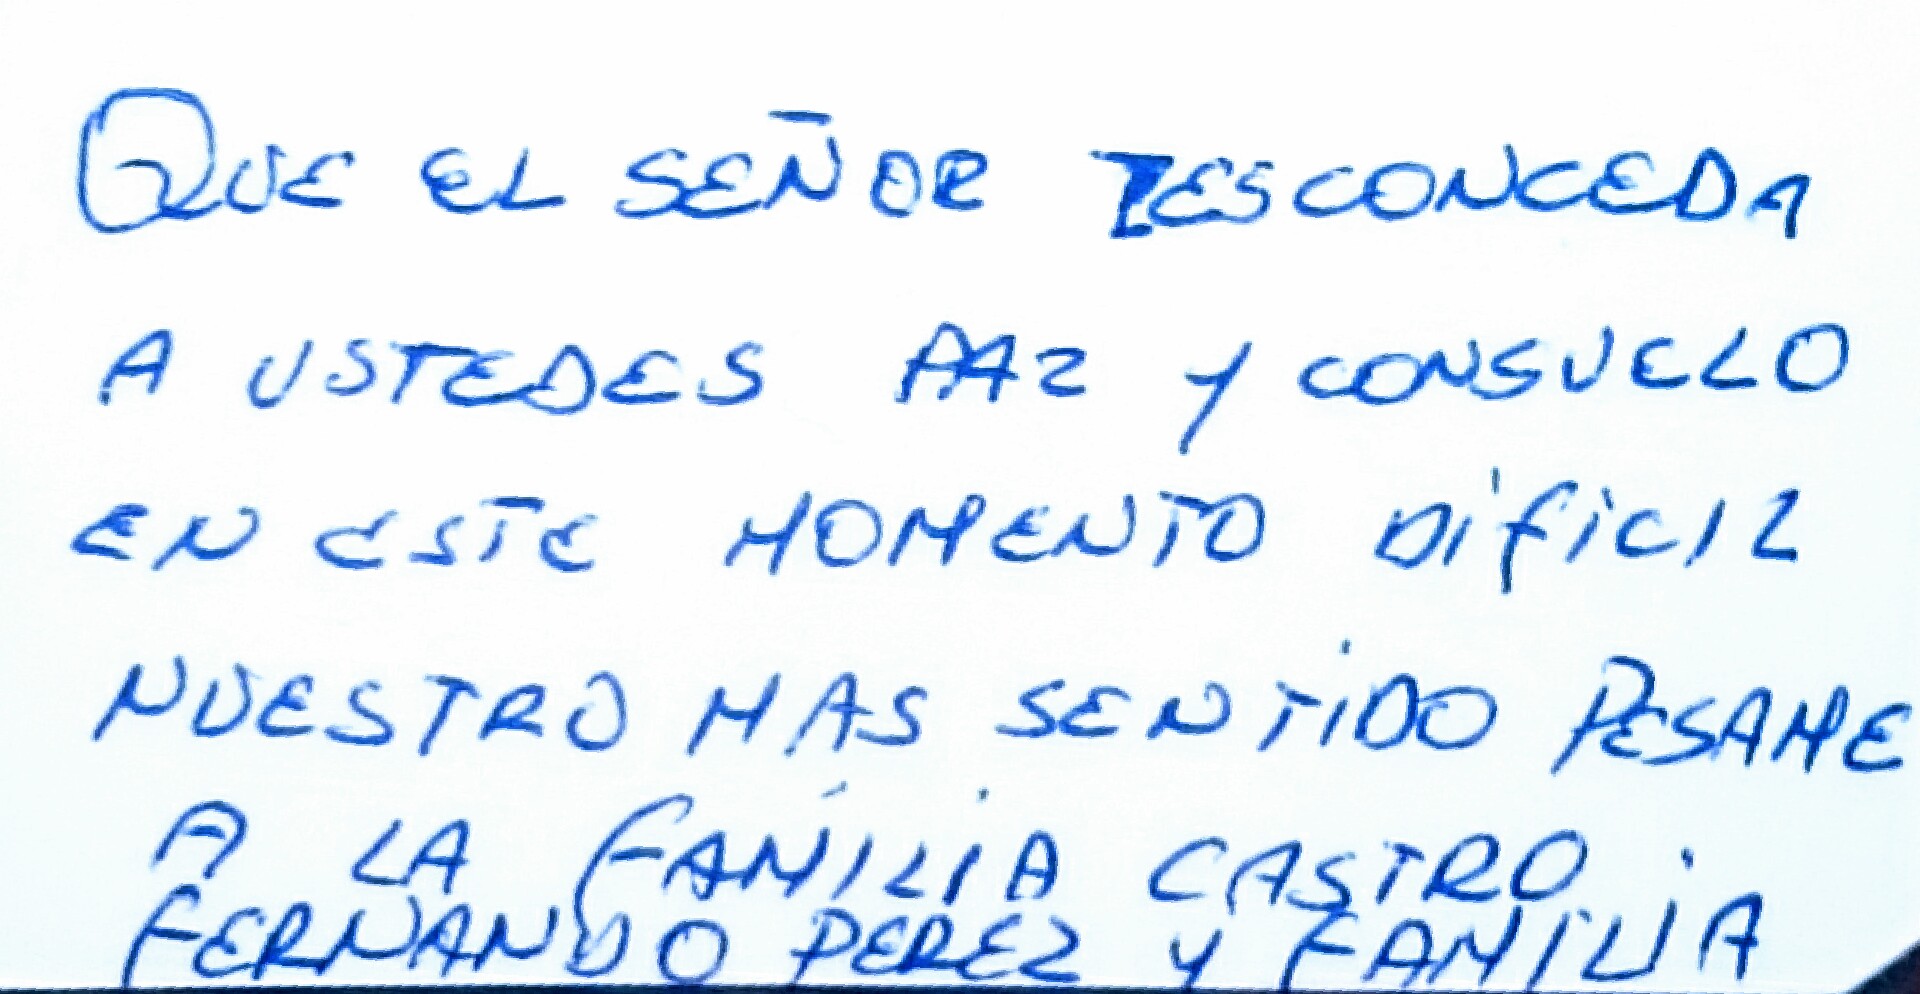 QUE EL SEÑOR LES CONCEDA
A USTEDES PAZ Y CONSUELO
EN ESTE MOMENTO DIFICIL
NUESTRO MAS SENTIDO PESAME
A LA FAMILIA CASTRO
FERNANDO PEREZ Y FAMILIA